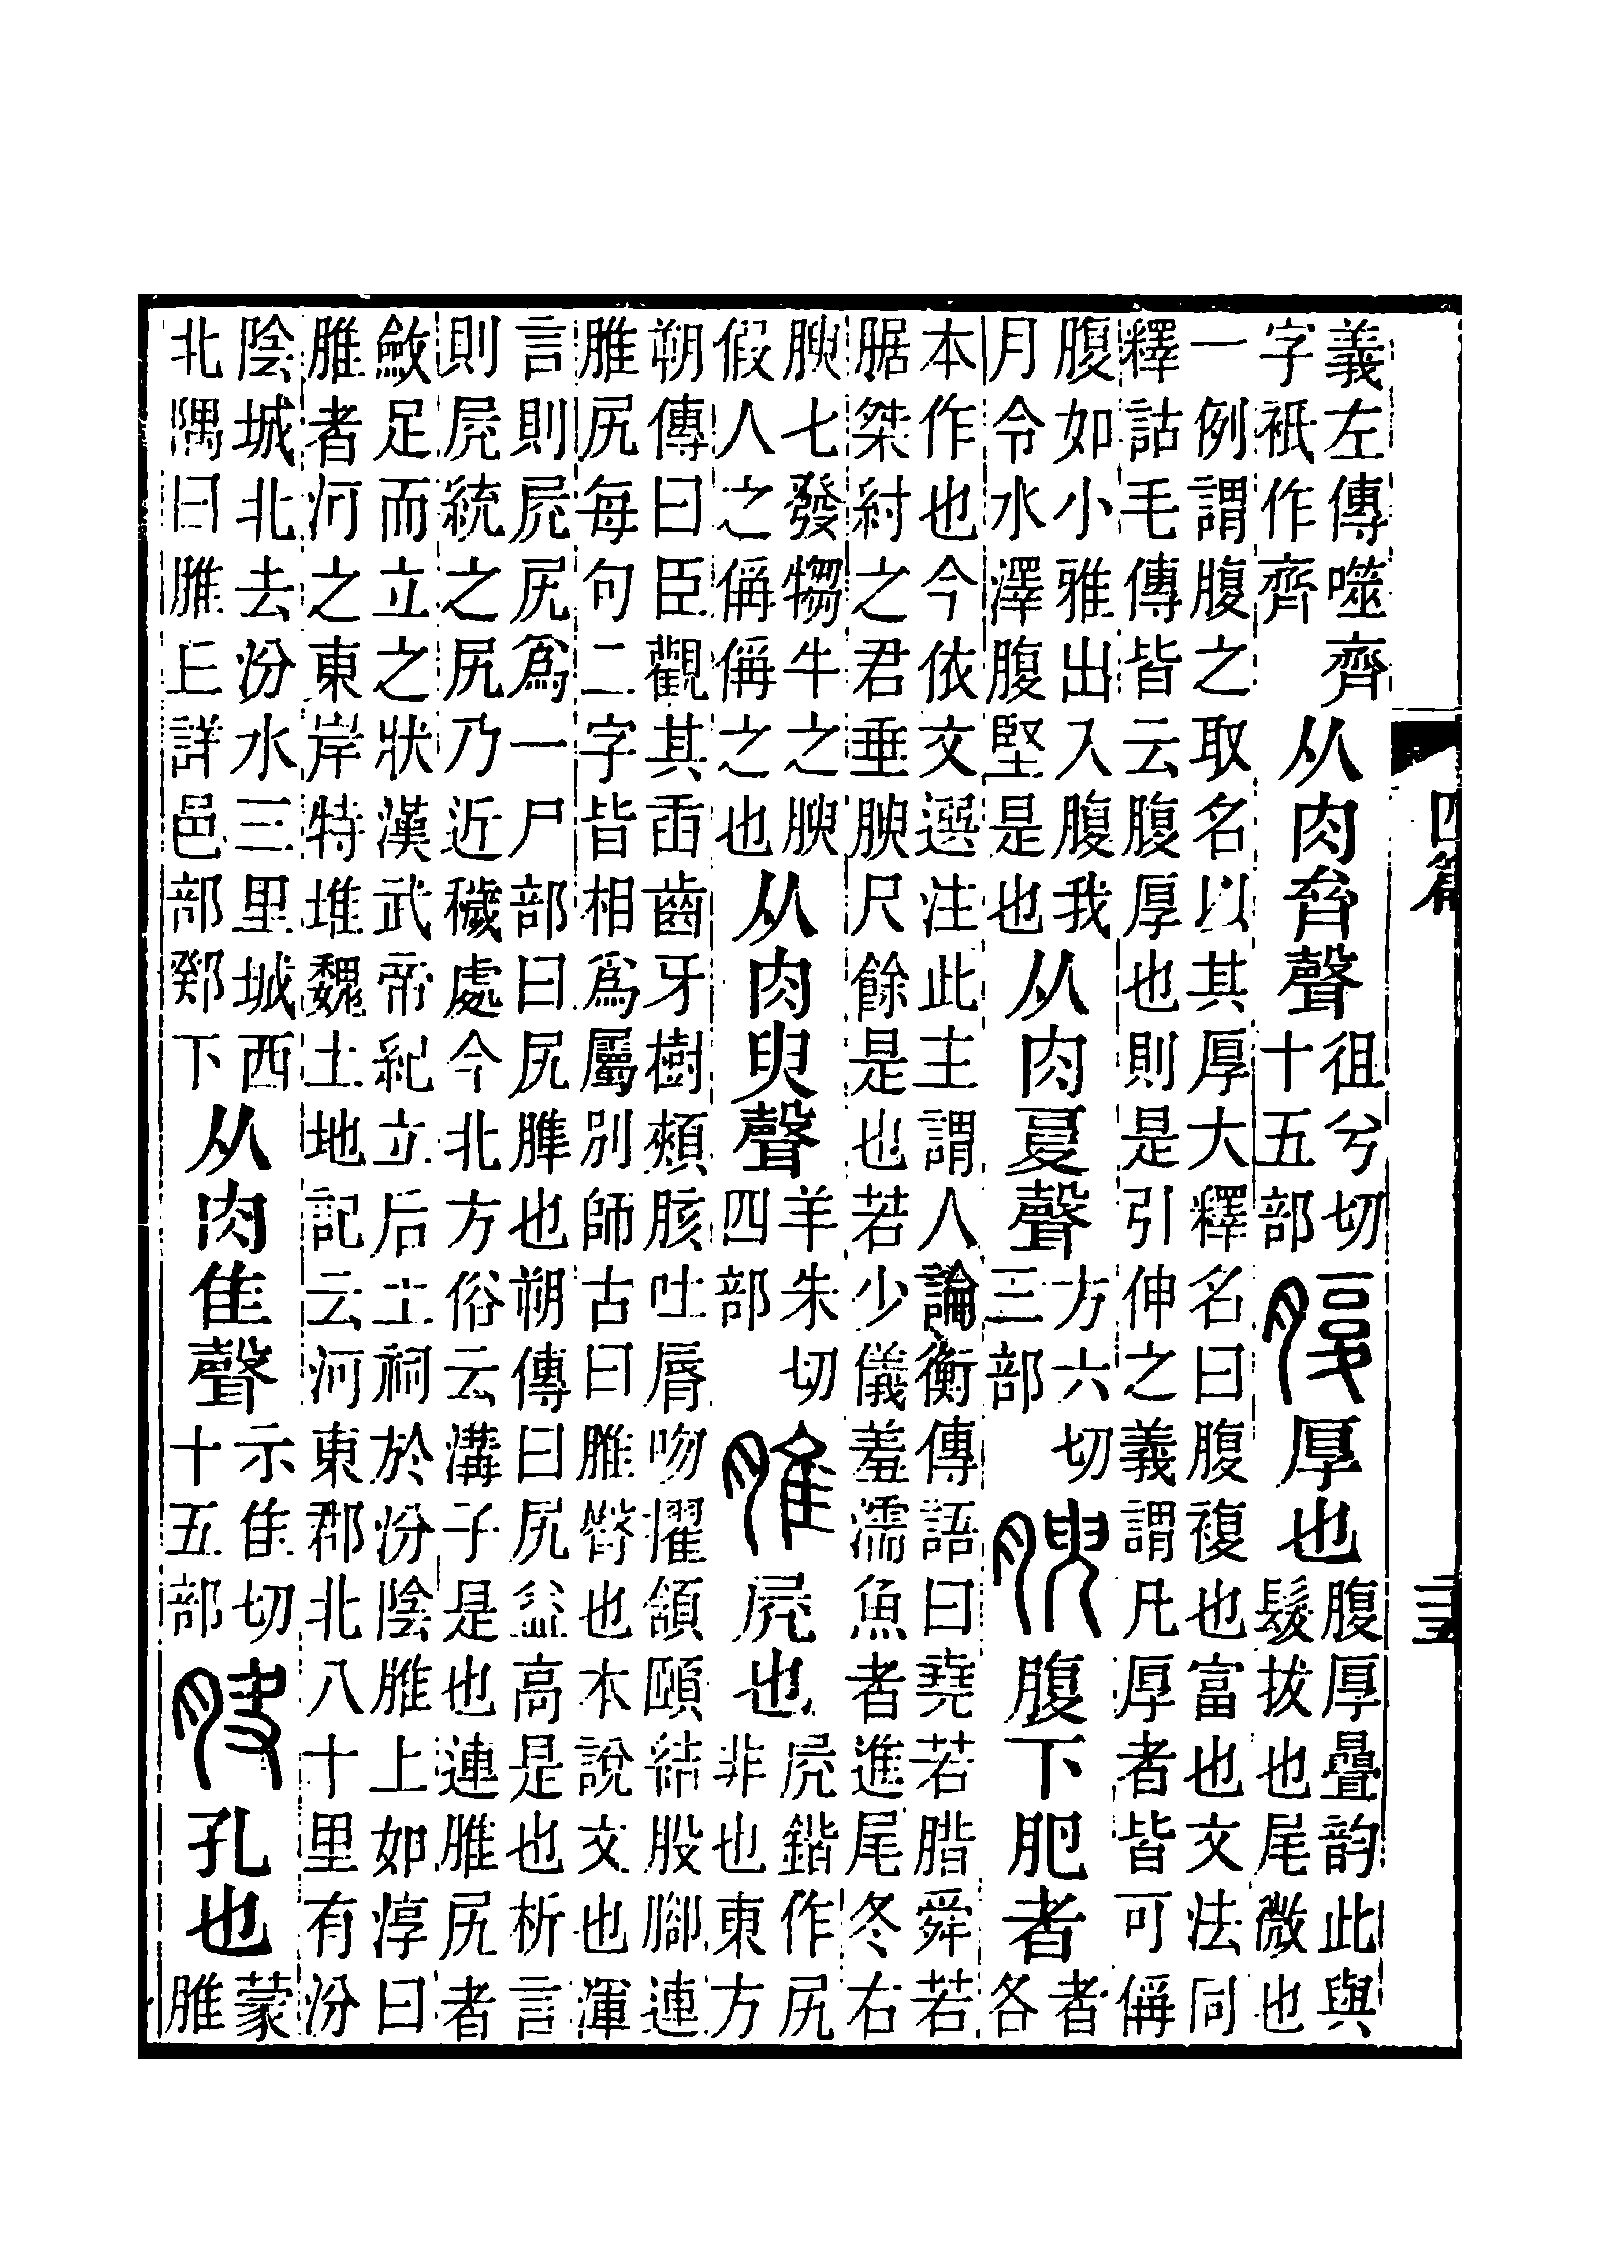 義左傳噬齊
字祇作齊
从肉𠫼聲
徂兮切
十五部
腹
厚也
腹厚疊韵此與
髮拔也尾微也
一例謂腹之取名以其厚大釋名曰腹複也富也文法同
釋詁毛傳皆云腹厚也則是引伸之義謂凡厚者皆可偁
腹如小雅出入腹我
月令水澤腹堅是也
从肉复聲
方六切
三部
腴
腹下肥者
者
各
本作也今依文選注此主謂人論衡傳語曰堯若腊舜若
腒桀紂之君垂腴尺餘是也若少儀羞濡魚者進尾冬右
腴七發犓牛之腴
假人之偁偁之也
从肉臾聲
羊朱切
四部
脽
𡱂也
𡱂鍇作尻
非也東方
朔傳曰臣觀其臿齒牙樹頰胲吐脣吻擢頷頤結股腳連
脽尻每句二字皆相爲屬別師古曰脽臀也本說文也渾
言則𡱂尻爲一尸部曰尻脽也朔傳曰尻益高是也析言
則𡱂統之尻乃近穢處今北方俗云溝子是也連脽尻者
斂足而立之狀漢武帝紀立后土祠於汾陰脽上如淳曰
脽者河之東岸特堆魏土地記云河東郡北八十里有汾
陰城北去汾水三里城西
北隅曰脽丘詳邑部鄈下
从肉隹聲
示隹切
十五部
䏐
孔也
蒙
脽
四篇
三五